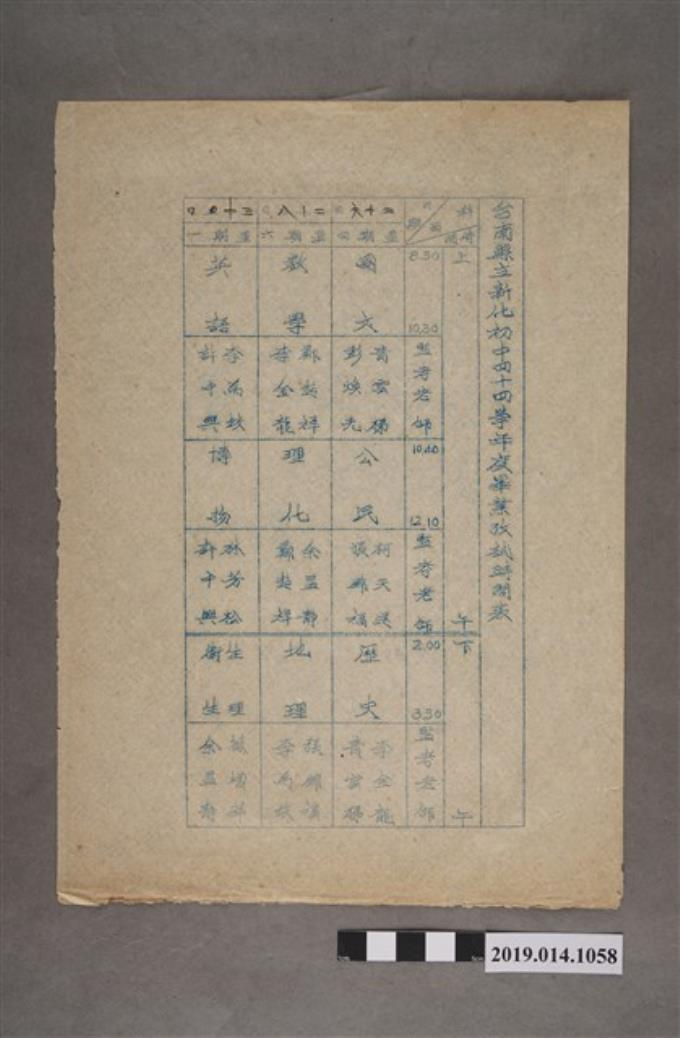 台南縣立新化初中四十四學年度畢業攷試時間表
科
時間
日期
上午
下午
8.30
10.30
監考老師
10.40
12.10
監考老師
2.00
3.30
監考老師
二十六日
星期四
國文
黃雲
彭煥光
公民
柯天送
張雄福
歷史
李金龍
黃雲
二十八日
星期六
數學
鄭越祥
李金龍
理化
余益靜
鄭越祥
地理
張雄福
李萬枝
三十日
星期一
英語
李萬枝
許千興
博物
林芳松
許千興
生理
衛生
余益靜